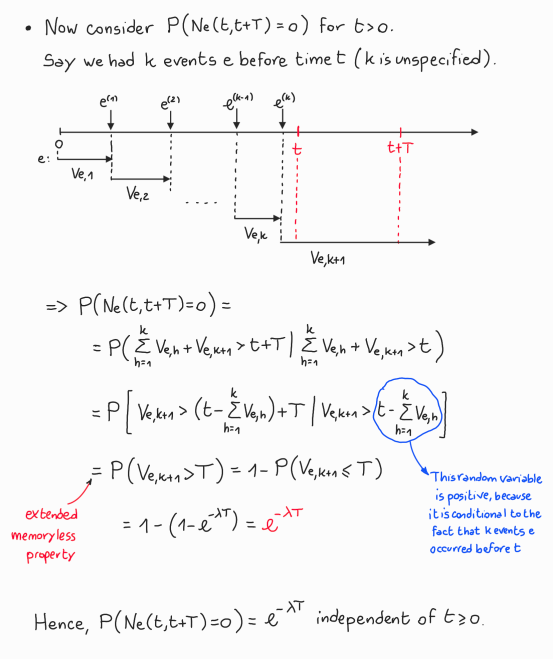 • Now consider P(Ne(t,t+T)=0) for t>0.
Say we had k events e before time t (k is unspecified).
e⁽¹⁾ e⁽²⁾ e⁽ᵏ⁻¹⁾ e⁽ᵏ⁾
0 t t+T
e:
Ve,1
Ve,2
....
Ve,k
Ve,k+1
=> P(Ne(t,t+T)=0) =
= P(∑_{h=1}^{k} Ve,h + Ve,k+1 > t+T | ∑_{h=1}^{k} Ve,h + Ve,k+1 > t)
= P[Ve,k+1 > (t-∑_{h=1}^{k} Ve,h)+T | Ve,k+1 > t-∑_{h=1}^{k} Ve,h]
= P(Ve,k+1 > T) = 1- P(Ve,k+1 ≤ T)
extended
memoryless
property
= 1-(1-e^{-λT}) = e^{-λT}
This random variable
is positive, because
it is conditional to the
fact that k events e
occurred before t
Hence, P(Ne(t,t+T)=0) = e^{-λT} independent of t≥0.